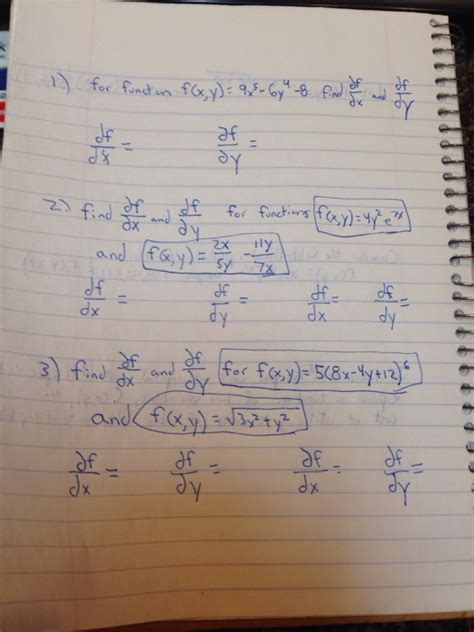 1.) for function f(x,y) = 9x⁵-6y⁴-8 find ∂f/∂x and ∂f/∂y
∂f/∂x = ∂f/∂y =
2.) find ∂f/∂x and ∂f/∂y for functions f(x,y)=4y²e⁷ˣ
and f(x,y) = 2x/5y - 11y/7x
∂f/∂x = ∂f/∂y = ∂f/∂x = ∂f/∂y =
3) find ∂f/∂x and ∂f/∂y for f(x,y) = 5(8x-4y+12)⁶
and f(x,y) = √3x²+y²
∂f/∂x = ∂f/∂y = ∂f/∂x = ∂f/∂y =